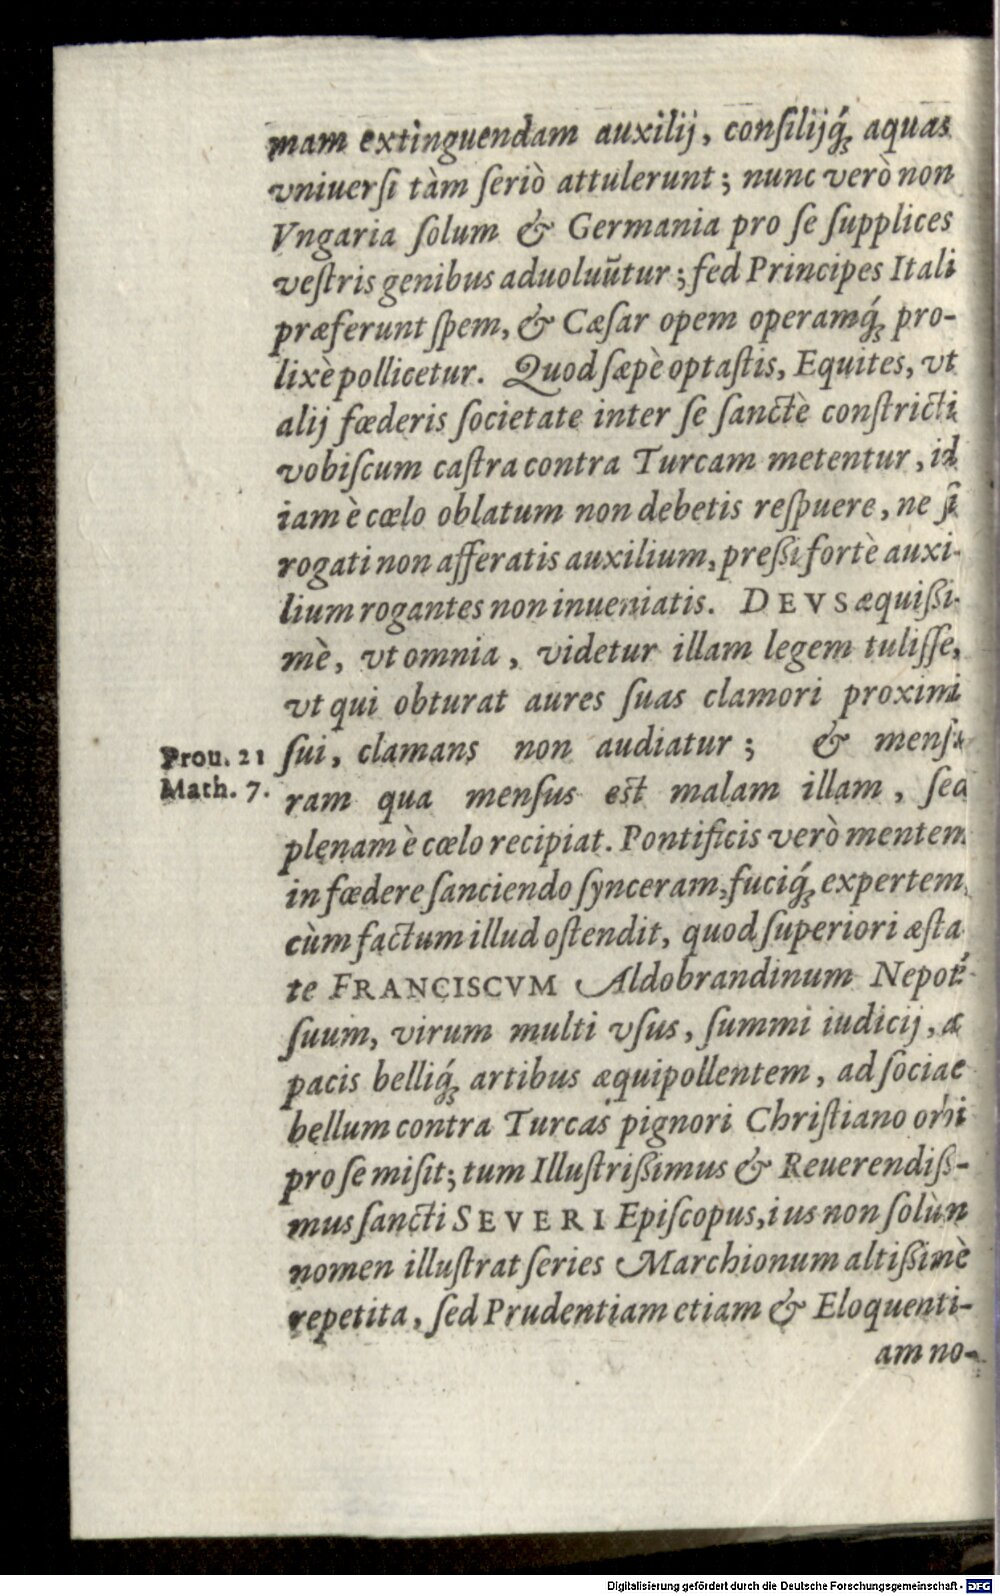 mam extinguendam auxilij, consilijq́; aquas
vniuersi tàm seriò attulerunt; nunc verò non
Vngaria solum & Germania pro se supplices
vestris genibus aduoluũtur; sed Principes Itali
præferunt spem, & Cæsar opem operamq́; pro-
lixè pollicetur. Quod sæpè optastis, Equites, vt
alij fœderis societate inter se sanctè constricti
vobiscum castra contra Turcam metentur, id
iam è cœlo oblatum non debetis respuere, ne si
rogati non afferatis auxilium, pressi fortè auxi-
lium rogantes non inueniatis. DEVS æquissi-
mè, vt omnia, videtur illam legem tulisse,
vt qui obturat aures suas clamori proximi
Prou. 21 sui, clamans non audiatur; & mensu-
Math. 7. ram qua mensus est malam illam, sed
plenam è cœlo recipiat. Pontificis verò mentem
in fœdere sanciendo synceram, fuciq́; expertem,
cùm factum illud ostendit, quod superiori æsta
te FRANCISCVM Aldobrandinum Nepotẽ
suum, virum multi vsus, summi iudicij, ac
pacis belliq́; artibus æquipollentem, ad sociale
bellum contra Turcas pignori Christiano orbi
pro se misit; tum Illustrissimus & Reuerendiss-
mus sancti SEVERI Episcopus, cuius non solùm
nomen illustrat series Marchionum altissimè
repetita, sed Prudentiam etiam & Eloquenti-
am no-
Digitalisierung gefördert durch die Deutsche Forschungsgemeinschaft - DFG